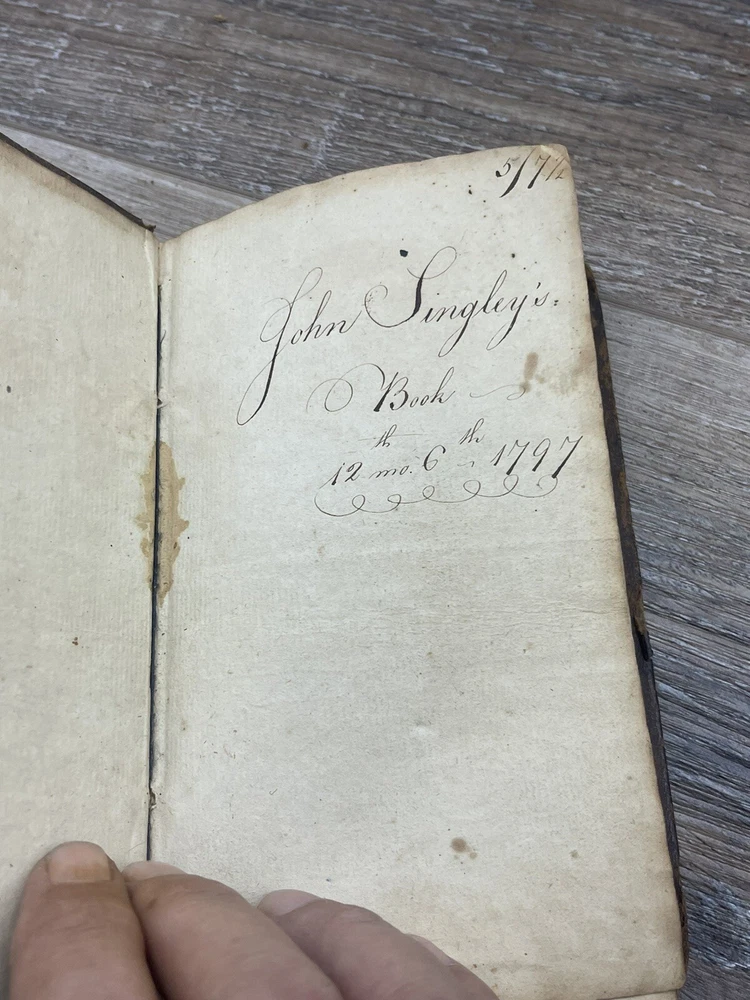 5/7½
John Singley's
Book
12th mo. 6th 1797